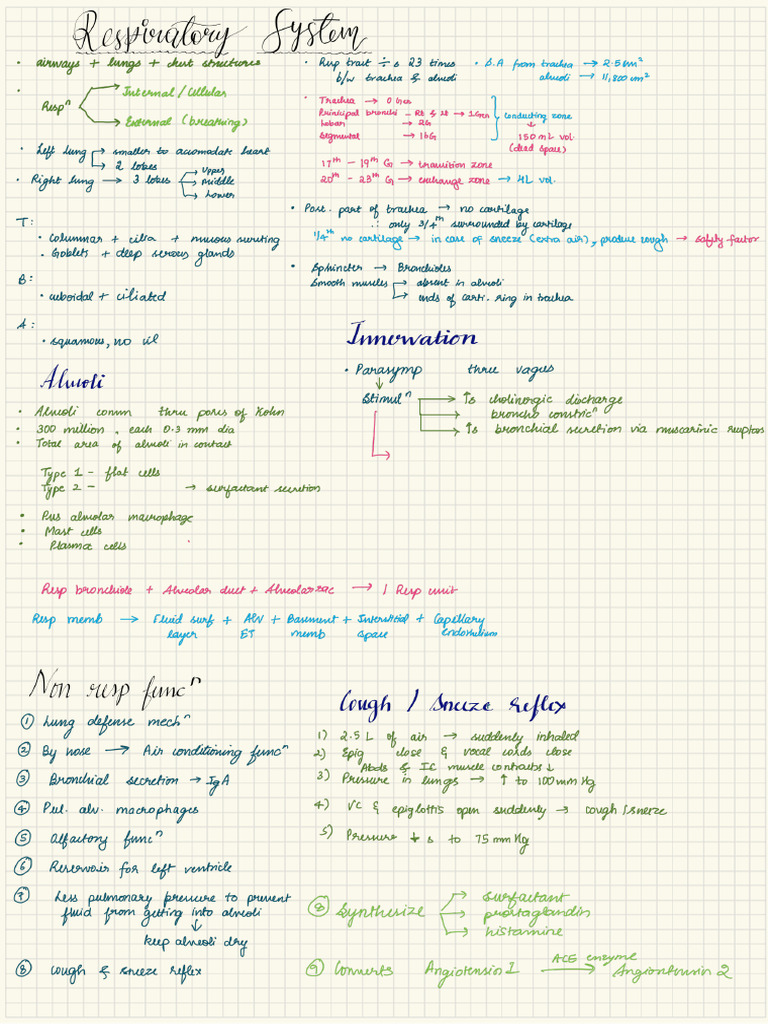 Respiratory System
• airways + lungs + chest structures
• Respⁿ
Internal / Cellular
External (breathing)
• Left lung → smaller to accomodate heart
→ 2 lobes
• Right lung → 3 lobes
Upper
Middle
Lower
T:
• Columnar + cilia + mucous secreting
• Goblets + deep serous glands
B:
• cuboidal + ciliated
A:
• squamous, no cil
• Resp tract ÷ s 23 times
b/w trachea & alveoli
• S.A from trachea → 2.5 cm²
alveoli → 11,800 cm²
• Trachea → 0 Gen
Principal bronchi - Rt & Lt → 1 Gen
Lobar → 2G
Segmental → 16G
conducting zone
↓
150 mL vol.
(dead space)
17ᵗʰ – 19ᵗʰ G → transition zone
20ᵗʰ – 23ᵗʰ G → exchange zone → 4L vol.
• Post. part of trachea → no cartilage
∴ only 3/4ᵗʰ surrounded by cartilage
1/4ᵗʰ no cartilage → in case of sneeze (extra air), produce cough → safety factor
• Sphincter → Bronchioles
Smooth muscles → absent in alveoli
→ ends of carti. ring in trachea
Innervation
• Parasymp thru vagus
↓
Stimulⁿ
→ ↑s cholinergic discharge
→ broncho constricⁿ
→ ↑s bronchial secretion via muscarinic receptors
Alveoli
• Alveoli comm thru pores of Kohn
• 300 million, each 0.3 mm dia
• Total area of alveoli in contact
Type 1 - flat cells
Type 2 - → surfactant secretion
• Pus alveolar macrophage
• Mast cells
• Plasma cells
Resp bronchiole + Alveolar duct + Alveolar sac → 1 Resp unit
Resp memb → Fluid surf + Alv + Basement + Interstitial + Capillary
layer ET memb space endothelium
Non resp funcⁿ
① Lung defense mechⁿ
② By nose → Air conditioning funcⁿ
③ Bronchial secretion → IgA
④ Pul. alv. macrophages
⑤ Olfactory funcⁿ
⑥ Reservoir for left ventricle
⑦ Less pulmonary pressure to prevent
fluid from getting into alveoli
↓
keep alveoli dry
⑧ cough & sneeze reflex
Cough / Sneeze reflex
1) 2.5 L of air → suddenly inhaled
2) Epig close & vocal cords close
Abds & IC muscle contracts ↓
3) Pressure in lungs → ↑ to 100 mm Hg
4) VC & epiglottis open suddenly → cough / sneeze
5) Pressure ↓ s to 75 mm Hg
⑧ Synthesize
→ surfactant
→ prostaglandin
→ histamine
⑨ Converts Angiotensin 1 ACE enzyme → Angiontensin 2